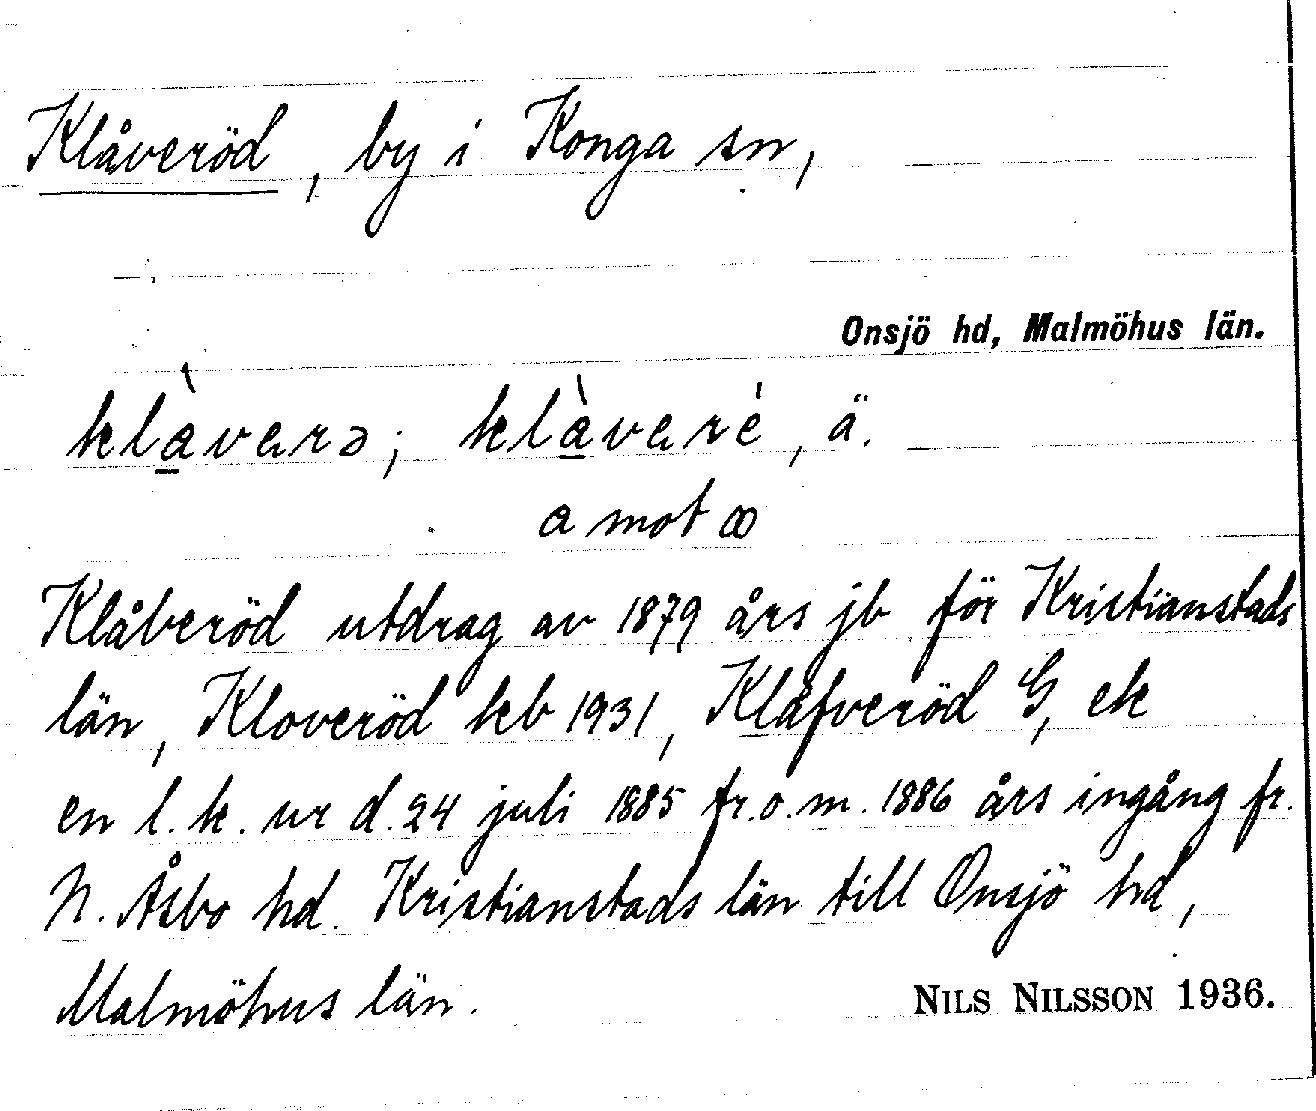 Klåveröd, by i Konga sn,
Onsjö hd, Malmöhus län.
klàvarə; klàvaré, ä.
a mot ꝏ
Klåberöd utdrag av 1879 års jb för Kristianstads
län, Kloveröd kb 1931, Klåfveröd G, ek
en l. k. br d. 24 juli 1885 fr.o.m. 1886 års ingång fr.
N. Åsbo hd. Kristianstads län till Onsjö hd,
Malmöhus län.
NILS NILSSON 1936.